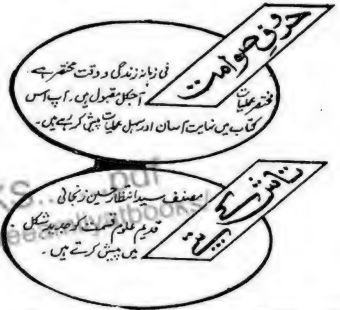 حروفِ صوامت
فی زمانہ زندگی و وقت مختصر ہے۔
مختصر عملیات آجکل مقبول ہیں۔ آپ اس
کتاب میں نہایت آسان اور سہل عملیات پیش کر رہے ہیں۔
تاش کے پتے
مصنف سید انتظار حسین زنجانی
قدیم علوم قسمت کو جدید شکل
میں پیش کرتے ہیں۔